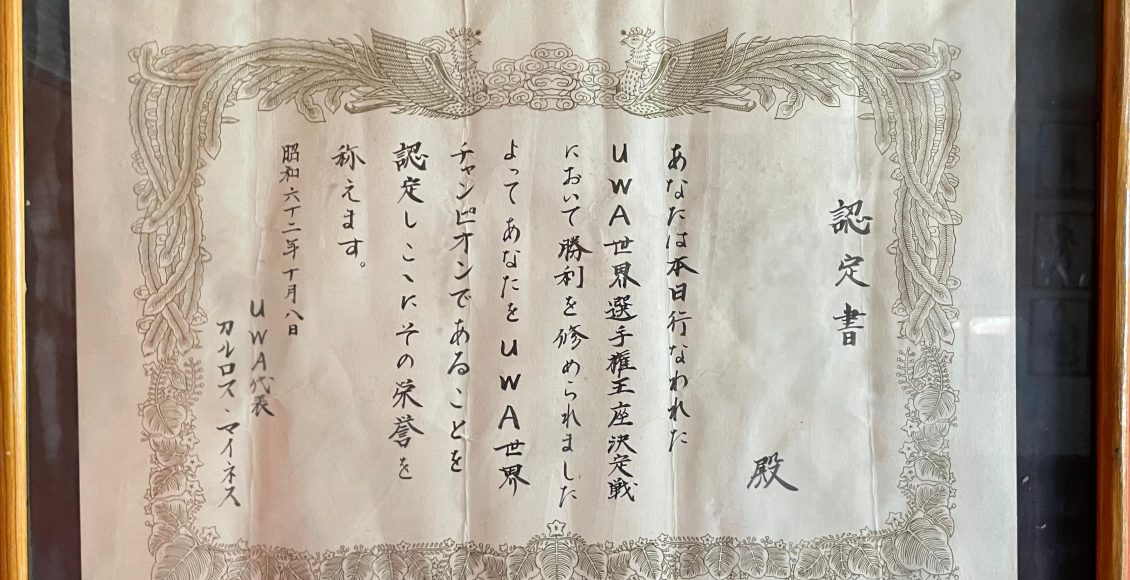 認定書
殿
あなたは本日行なわれた
UWA世界選手権王座決定戦
において勝利を修められました
よってあなたをUWA世界
チャンピオンであることを
認定しここにその栄誉を
称えます。
昭和六十二年十月八日
UWA代表
カルロス・マイネス